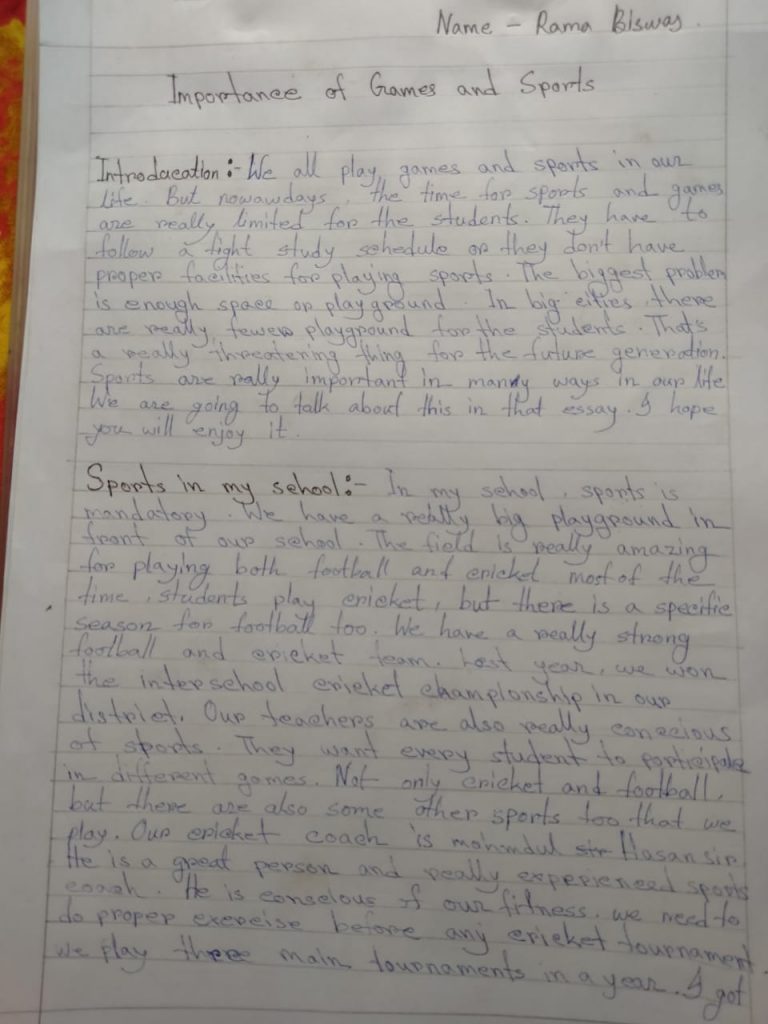 Name - Rama Biswas.
Importance of Games and Sports
Introducation :- We all play, games and sports in our
life. But nowawdays, the time for sports and games
are really limited for the students. They have to
follow a tight study schedule or they don't have
proper facilities for playing sports. The biggest problem
is enough space or playground. In big cities, there
are really, fewer playground for the students. That's
a really threatering thing for the future generation.
Sports are really important in many ways in our life
We are going to talk about this in that essay. I hope
you will enjoy it.
Sports in my school :- In my school, sports is
mandatory. We have a really big playground in
front of our school. The field is really amazing
for playing both football and cricket most of the
time, students play cricket, but there is a specific
season for football too. We have a really strong
football and cricket team. Last year, we won
the interschool cricket championship in our
district. Our teachers are also really conscious
of sports. They want every student to participate
in different games. Not only cricket and football,
but there are also some other sports too that we
play. Our cricket coach is mohmdul str Hasan sir.
He is a great person and really experienced sports
coach. He is conscious of our fitness. we need to
do proper exercise before any cricket tournament.
we play three main tournaments in a year. I got